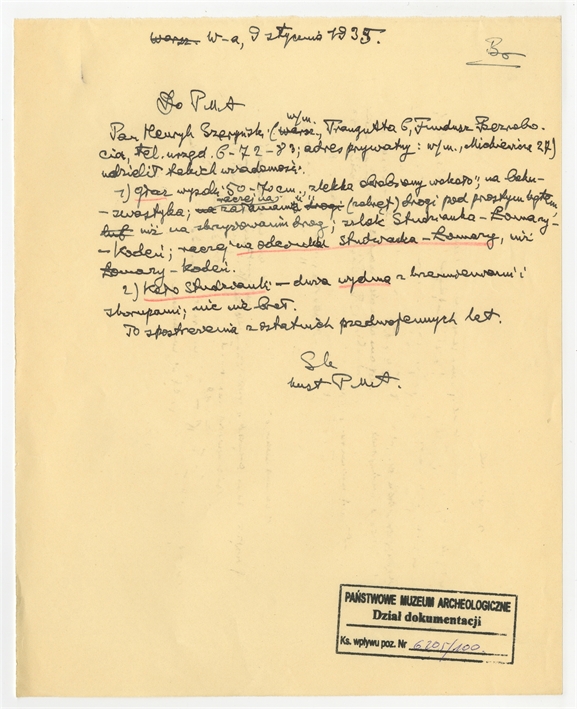 W-a, 9 stycznia 1935.
Do PMA
w/m.
Pan Henryk Szarpiński (Traugutta 6, Fundusz Bezrobo-
cia, tel. urzęd. 6-72-83; adres prywatny: w/m., Mickiewicza 27)
udzielił takich wiadomości.
1) głaz wysoki 50-70 cm., "zlekka obrobiony wokoło", na boku-
raczej na
-swastyka; załamaniu (zakręt) drogi pod prostym kątem,
niż na skrzyżowaniu dróg; szlak Studzianka-Łomazy-
-Kodeń; raczej na odcinku Studzianka-Łomazy, niż
Łomazy-Kodeń.
2) Koło Studzianki - dwie wydmy z krzemieniami i
skorupami; nic nie brał.
To spostrzeżenia z ostatnich przedwojennych lat.
PMA.
PAŃSTWOWE MUZEUM ARCHEOLOGICZNE
Dział dokumentacji
Ks. wpływu poz. Nr 6205/100.